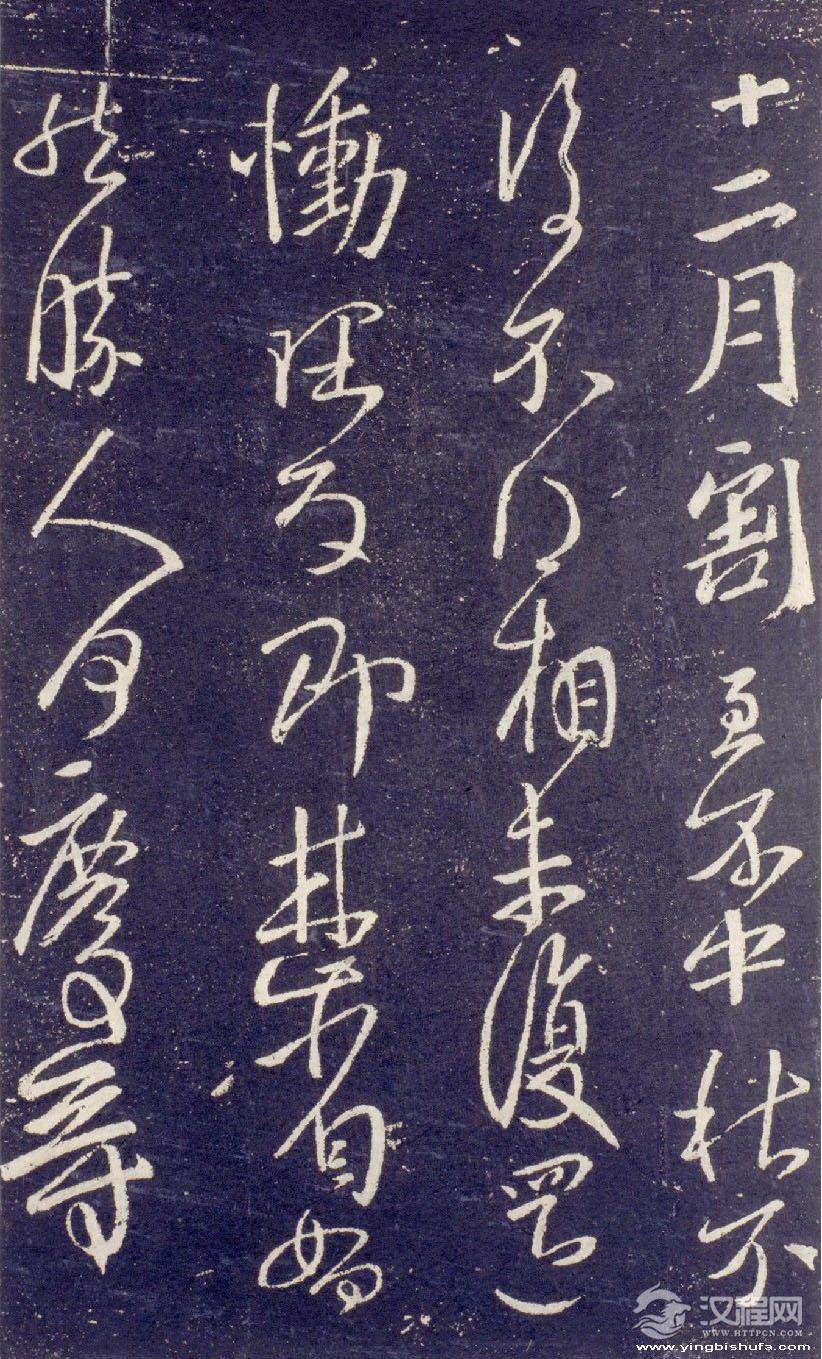 十二月割至不中秋不
復不得相未復還
慟理為即甚省如何
然勝人何慶等
汉程网
WWW.HTTPCN.COM
www.yingbishufa.com